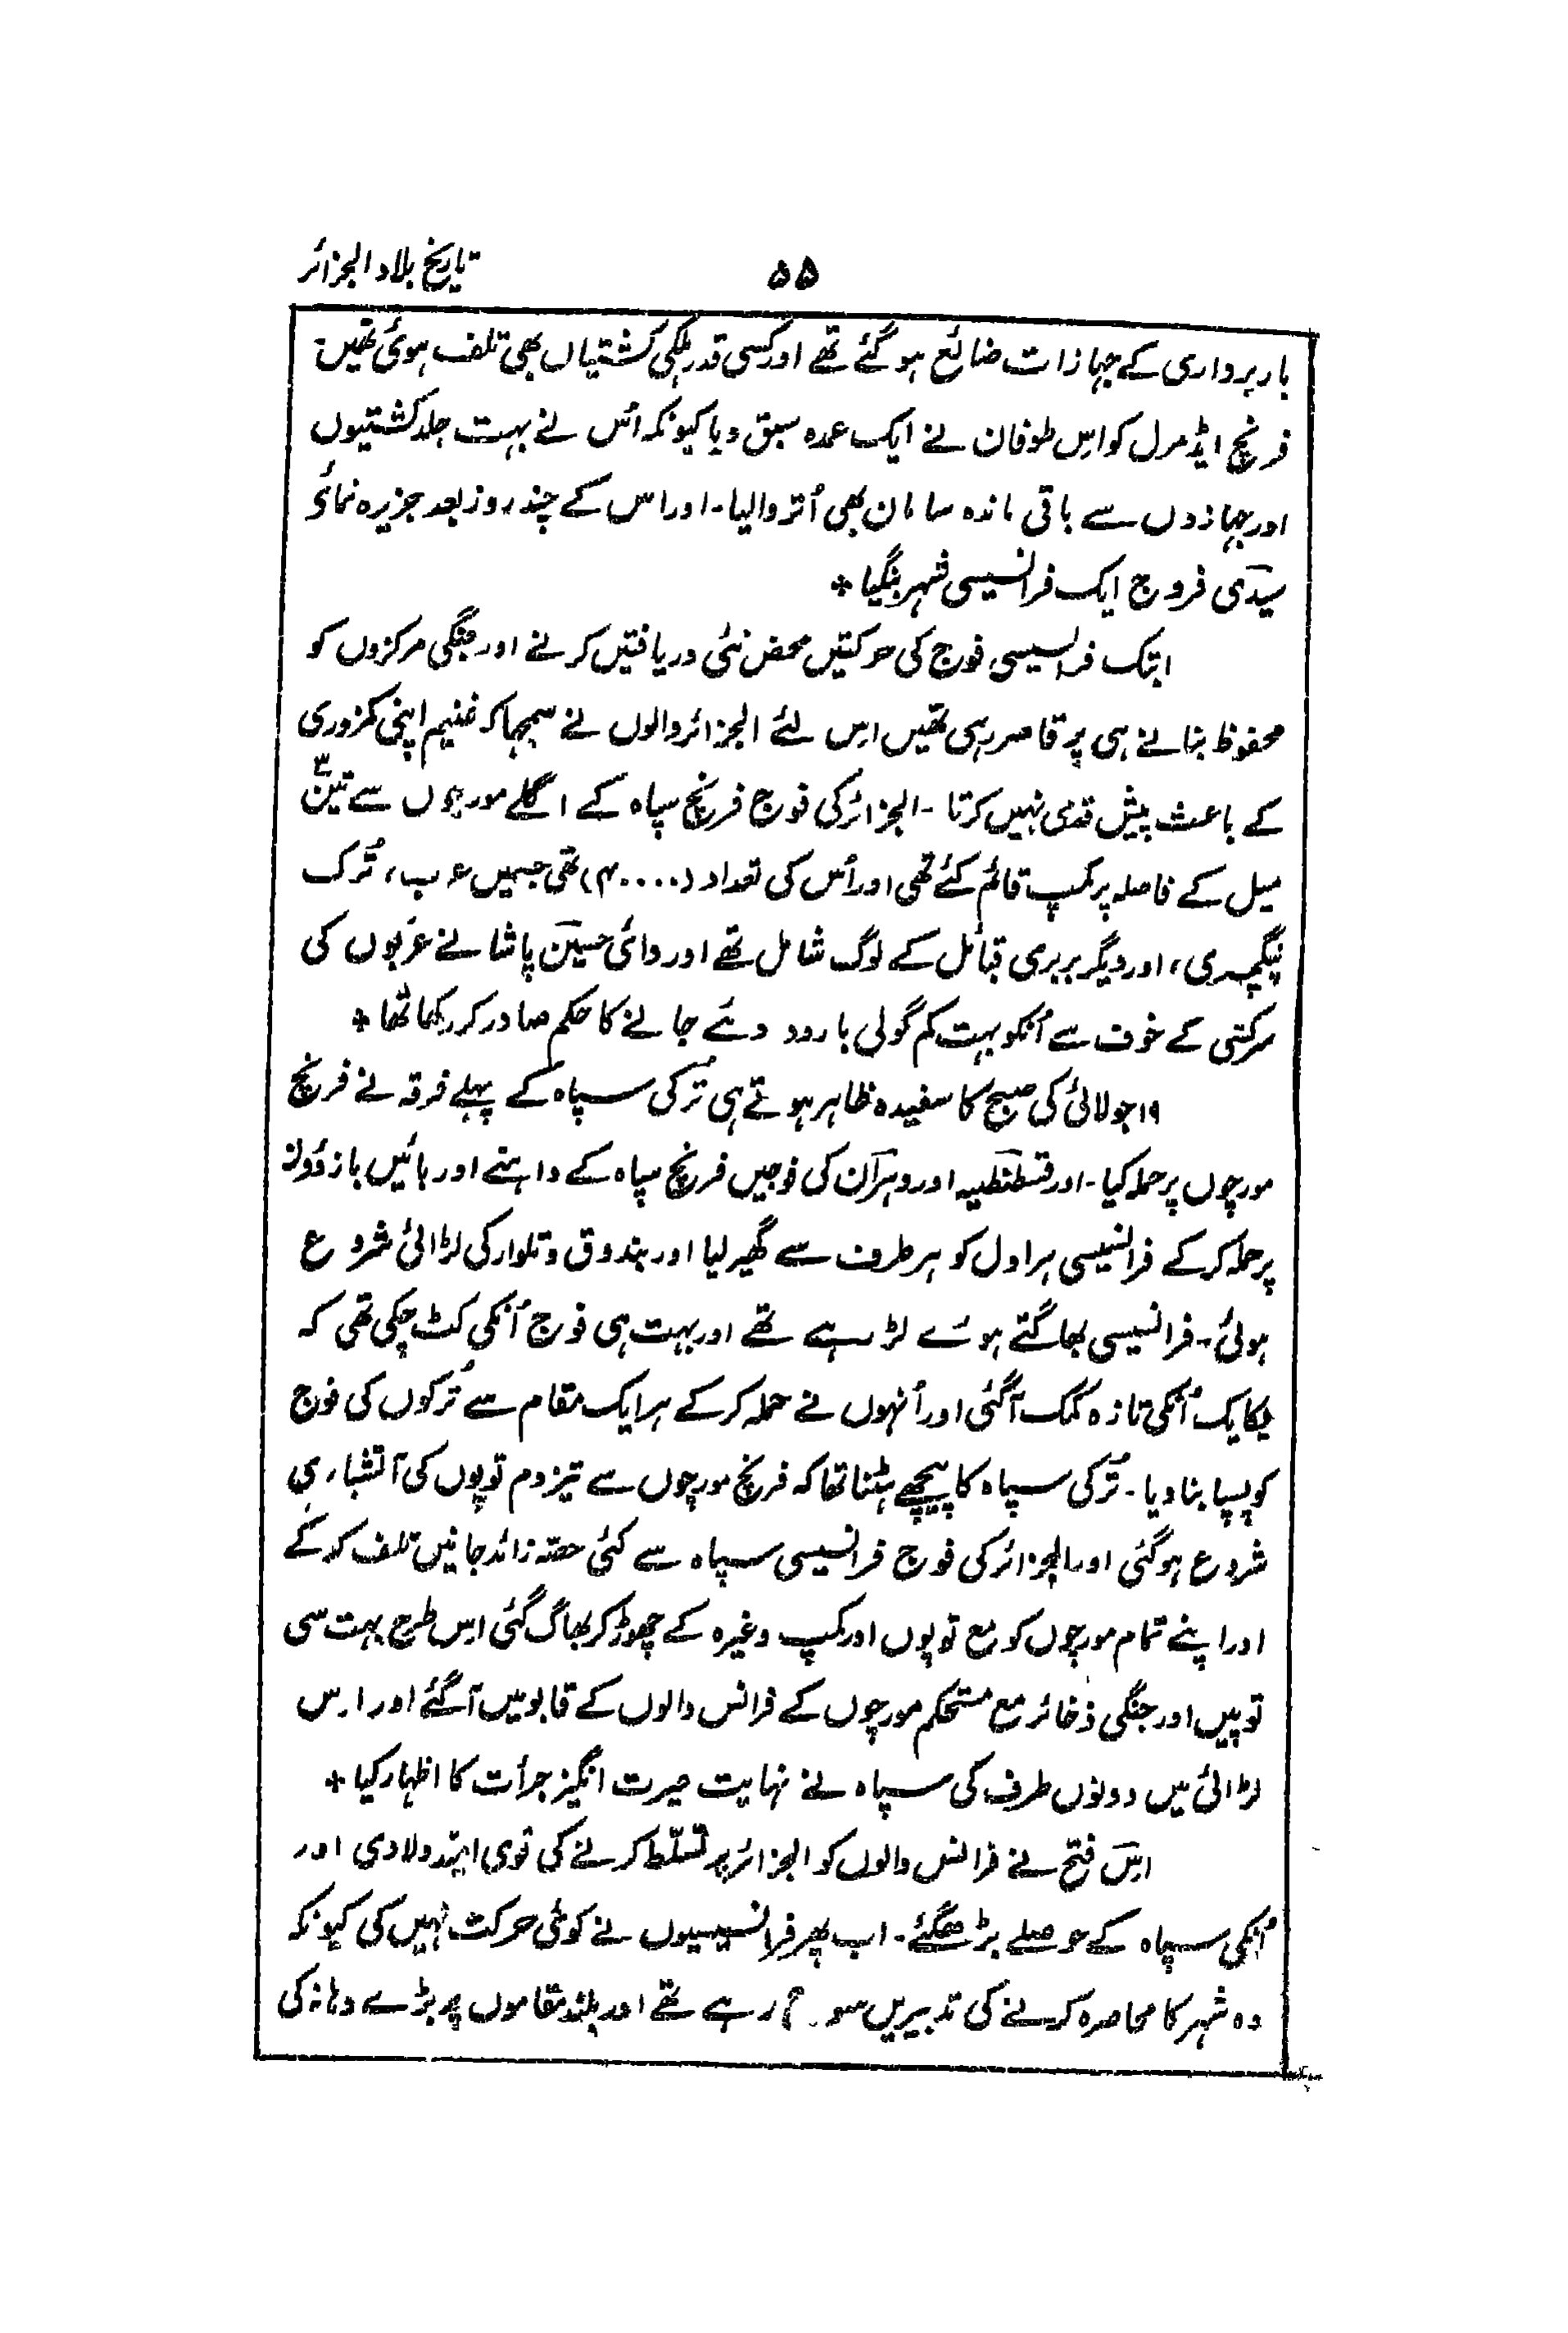 ۵۵ تاریخ بلاد الجزائر
باربرداری کے جہازات ضائع ہوگئے تھے اورکسی قدر ہلکی کشتیاں بھی تلف ہوئی تھیں۔
فرنچ ایڈمرل کو اِس طوفان نے ایک عمدہ سبق دیا کیونکہ اُس نے بہت جلد کشتیوں
اورجہازوں سے باقی ماندہ سامان بھی اُتروالیا۔ اوراس کے چند روز بعد جزیرہ نمائے
سیدی فروج ایک فرانسیسی شہر بنگیا *
ابتک فرانسیسی فوج کی حرکتیں محض نئی دریافتیں کرنے اور جنگی مرکزوں کو
محفوظ بنانے ہی پر قاصر رہی تھیں اِس لئے الجزائر والوں نے سمجھا کہ غنیم اپنی کمزوری
کے باعث پیش قدمی نہیں کرتا۔ الجزائر کی فوج فرنچ سپاہ کے اگلے مورچوں سے تین ۳
میل کے فاصلہ پر کمپ قائم کئے تھی اور اُس کی تعداد (۴۰۰۰۰) تھی جسمیں عرب، تُرک
ینگچری، اور دیگر بربری قبائل کے لوگ شامل تھے اور دائی حسین پاشا نے عربوں کی
سرکشی کے خوف سے اُنکو بہت کم گولی بارود دئے جانے کا حکم صادر کر رکھا تھا *
۱۹ جولائی کی صبح کا سفیدہ ظاہر ہوتے ہی تُرکی سپاہ کے پہلے فرقہ نے فرنچ
مورچوں پر حملہ کیا۔ اور قسطنطیہ اور وہران کی فوجیں فرنچ سپاہ کے داہنے اور بائیں بازوؤں
پر حملہ کرکے فرانسیسی ہراول کو ہر طرف سے گھیر لیا اور بندوق و تلوار کی لڑائی شروع
ہوئی۔ فرانسیسی بھاگتے ہوئے لڑ رہے تھے اور بہت ہی فوج اُنکی کٹ چکی تھی کہ
یکایک اُنکی تازہ کمک آگئی اور اُنہوں نے حملہ کرکے ہر ایک مقام سے تُرکوں کی فوج
کو پسپا بنا دیا۔ تُرکی سپاہ کا پیچھے ہٹنا تھا کہ فرنچ مورچوں سے تیزدم توپوں کی آتشباری
شروع ہوگئی اور الجزائر کی فوج فرانسیسی سپاہ سے کئی حصّہ زائد جانیں تلف کرکے
اور اپنے تمام مورچوں کو مع توپوں اور کمپ وغیرہ کے چھوڑ کر بھاگ گئی اِس طرح بہت سی
توپیں اور جنگی ذخائر مع مستحکم مورچوں کے فرانس والوں کے قابو میں آگئے اور اِس
لڑائی میں دونوں طرف کی سپاہ نے نہایت حیرت انگیز جرأت کا اظہار کیا *
اِس فتح نے فرانس والوں کو الجزائر پر تسلّط کرنے کی قوی امید دلادی اور
اُنکی سپاہ کے حوصلے بڑھگئے۔ اب پھر فرانسیسیوں نے کوئی حرکت نہیں کی کیونکہ
وہ شہر کا محاصرہ کرنے کی تدبیریں سوچ رہے تھے اور بلند مقاموں پر بڑے دہانہ کی